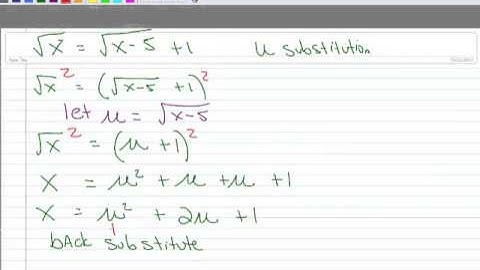 √x = √x-5 + 1 u substitution
√x² = (√x-5 + 1)²
let u = √x-5
√x² = (u + 1)²
x = u² + u + u + 1
x = u² + 2u + 1
bAck substitute